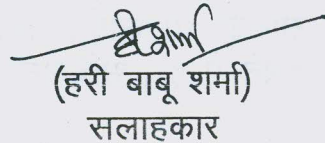 (हरी बाबू शर्मा)
सलाहकार